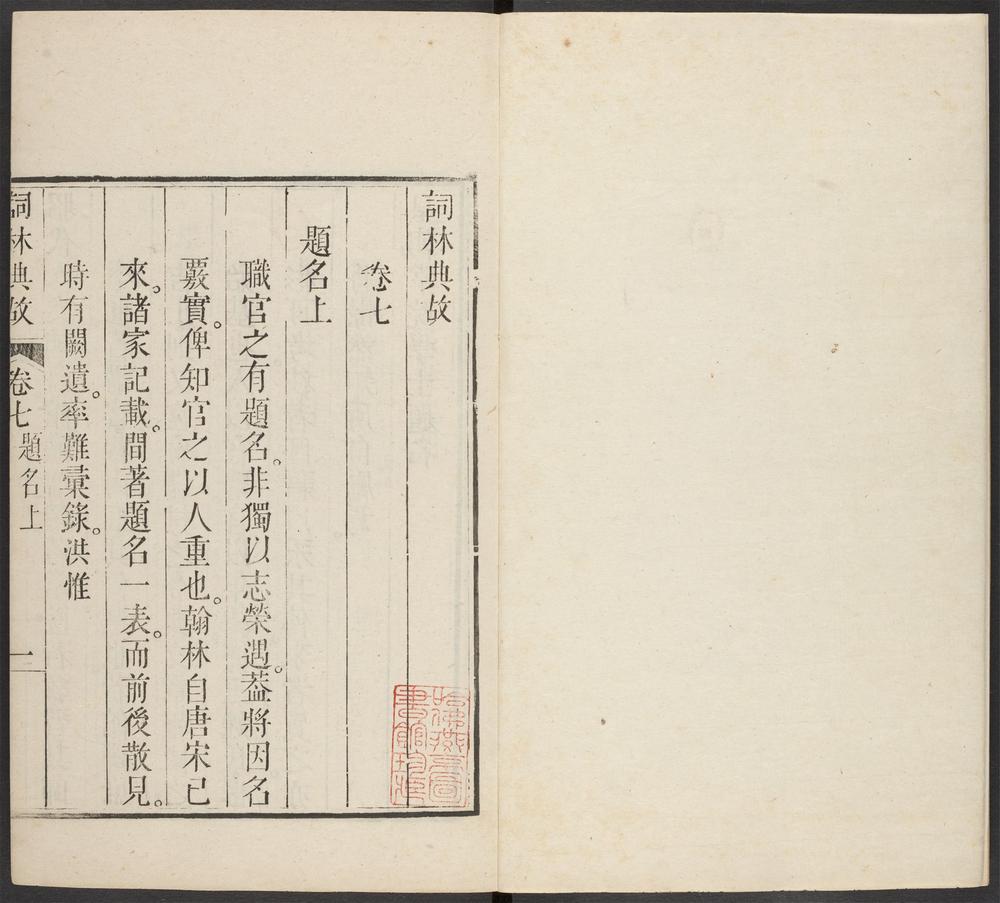 詞林典故
卷七
題名上
職官之有題名。非獨以志榮遇。葢將因名
覈實。俾知官之以人重也。翰林自唐宋已
來。諸家記載。間著題名一表。而前後散見。
時有闕遺。率難彙錄。洪惟
詞林典故 卷七 題名上 一
哈佛燕京圖
書館珍藏